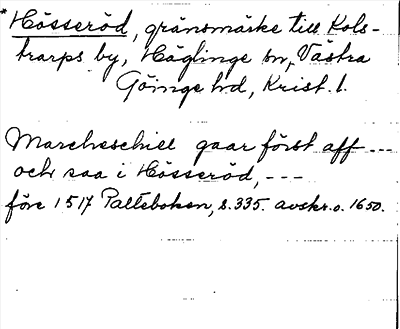 *Hösseröd, gränsmärke till Kols-
trarps by, Häglinge sn, Västra
Göinge hd, Krist. l.
Marcheschiell gaar först aff ---
och saa i Hösseröd, ---
före 1517 Palteboken, s. 335. avskr. o. 1650.